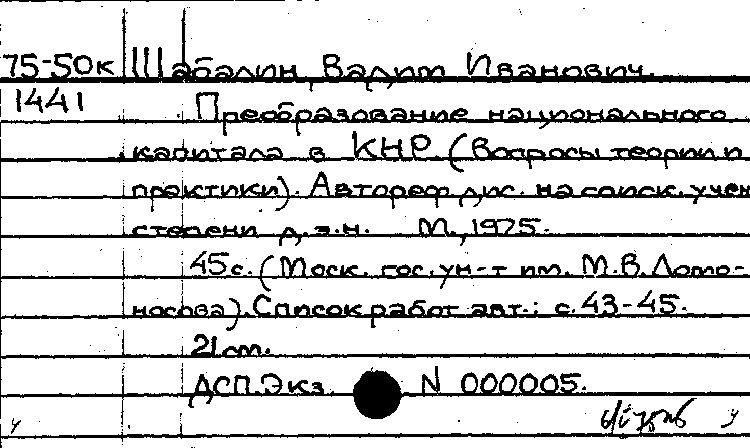 75-50к Шабалин, Вадим Иванович.
1441 Преобразование национального
капитала в КНР. (Вопросы теории и
практики). Автореф. дис. на соиск. учен
степени д.э.н. М., 1975.
45с. (Моск. гос. ун-т им. М.В. Ломо-
носова). Список работ авт.: с. 43-45.
21 см.
ДСП. Экз. N 000005.
у у